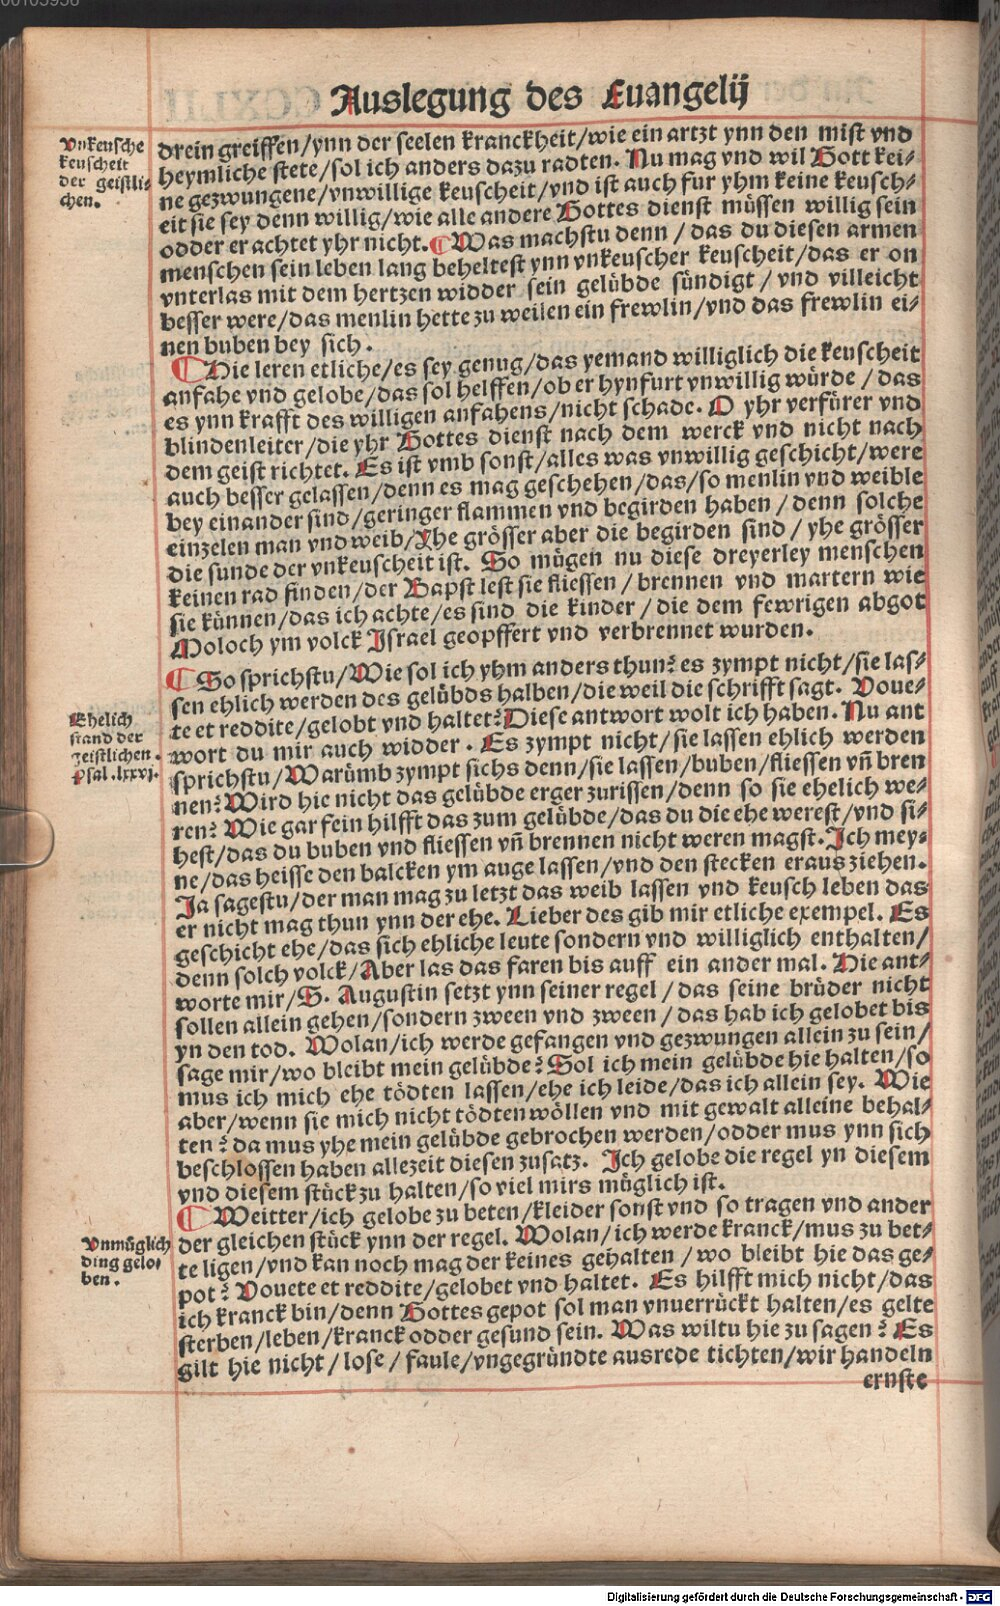 Auslegung des Euangelij
Vnkeusche
keuscheit
der geistli-
chen.
drein greiffen/ynn der seelen kranckheit/wie ein artzt ynn den mist vnd
heymliche stete/sol ich anders dazu radten. Nu mag vnd wil Gott kei-
ne gezwungene/vnwillige keuscheit/vnd ist auch fur yhm keine keusch-
eit sie sey denn willig/wie alle andere Gottes dienst müssen willig sein
odder er achtet yhr nicht. ¶ Was machstu denn/das du diesen armen
menschen sein leben lang beheltest ynn vnkeuscher keuscheit/das er on
vnterlas mit dem hertzen widder sein gelübde sündigt/vnd villeicht
besser were/das menlin hette zu weilen ein frewlin/vnd das frewlin ei-
nen buben bey sich.
¶ Hie leren etliche/es sey genug/das yemand williglich die keuscheit
anfahe vnd gelobe/das sol helffen/ob er hynfurt vnwillig würde/das
es ynn krafft des willigen anfahens/nicht schade. O yhr verfürer vnd
blindenleiter/die yhr Gottes dienst nach dem werck vnd nicht nach
dem geist richtet. Es ist vmb sonst/alles was vnwillig geschicht/were
auch besser gelassen/denn es mag geschehen/das/so menlin vnd weible
bey einander sind/geringer flammen vnd begirden haben/denn solche
einzelen man vnd weib/Yhe grösser aber die begirden sind/yhe grösser
die sunde der vnkeuscheit ist. So mügen nu diese dreyerley menschen
keinen rad finden/der Bapst lest sie fliessen/brennen vnd martern wie
sie künnen/das ich achte/es sind die kinder/die dem fewrigen abgot
Moloch ym volck Israel geopffert vnd verbrennet wurden.
¶ So sprichstu/Wie sol ich yhm anders thun? es zympt nicht/sie las-
sen ehlich werden des gelübds halben/die weil die schrifft sagt. Voue-
Ehelich
stand der
geistlichen.
Psal.lxxvj.
te et reddite/gelobt vnd haltet? Diese antwort wolt ich haben. Nu ant
wort du mir auch widder. Es zympt nicht/sie lassen ehlich werden
sprichstu/Warümb zympt sichs denn/sie lassen/buben/fliessen vñ bren
nen? Wird hie nicht das gelübde erger zurissen/denn so sie ehelich we-
ren? Wie gar fein hilfft das zum gelübde/das du die ehe werest/vnd si-
hest/das du buben vnd fliessen vñ brennen nicht weren magst. Ich mey-
ne/das heisse den balcken ym auge lassen/vnd den stecken eraus ziehen.
Ja sagestu/der man mag zu letzt das weib lassen vnd keusch leben das
er nicht mag thun ynn der ehe. Lieber des gib mir etliche exempel. Es
geschicht ehe/das sich ehliche leute sondern vnd williglich enthalten/
denn solch volck/Aber las das faren bis auff ein ander mal. Hie ant-
worte mir/S. Augustin setzt ynn seiner regel/das seine brüder nicht
sollen allein gehen/sondern zween vnd zween/das hab ich gelobet bis
yn den tod. Wolan/ich werde gefangen vnd gezwungen allein zu sein/
sage mir/wo bleibt mein gelübde? Sol ich mein gelübde hie halten/so
mus ich mich ehe tödten lassen/ehe ich leide/das ich allein sey. Wie
aber/wenn sie mich nicht tödten wöllen vnd mit gewalt alleine behal-
ten? da mus yhe mein gelübde gebrochen werden/odder mus ynn sich
beschlossen haben allezeit diesen zusatz. Ich gelobe die regel yn diesem
vnd diesem stück zu halten/so viel mirs müglich ist.
¶ Weitter/ich gelobe zu beten/kleider sonst vnd so tragen vnd ander
Vnmüglich
ding gelo-
ben.
der gleichen stück ynn der regel. Wolan/ich werde kranck/mus zu bet-
te ligen/vnd kan noch mag der keines gehalten/wo bleibt hie das ge-
pot? Vouete et reddite/gelobet vnd haltet. Es hilfft mich nicht/das
ich kranck bin/denn Gottes gepot sol man vnuerrückt halten/es gelte
sterben/leben/kranck odder gesund sein. Was wiltu hie zu sagen? Es
gilt hie nicht/lose/faule/vngegründte ausrede tichten/wir handeln
ernste
Digitalisierung gefördert durch die Deutsche Forschungsgemeinschaft - DFG